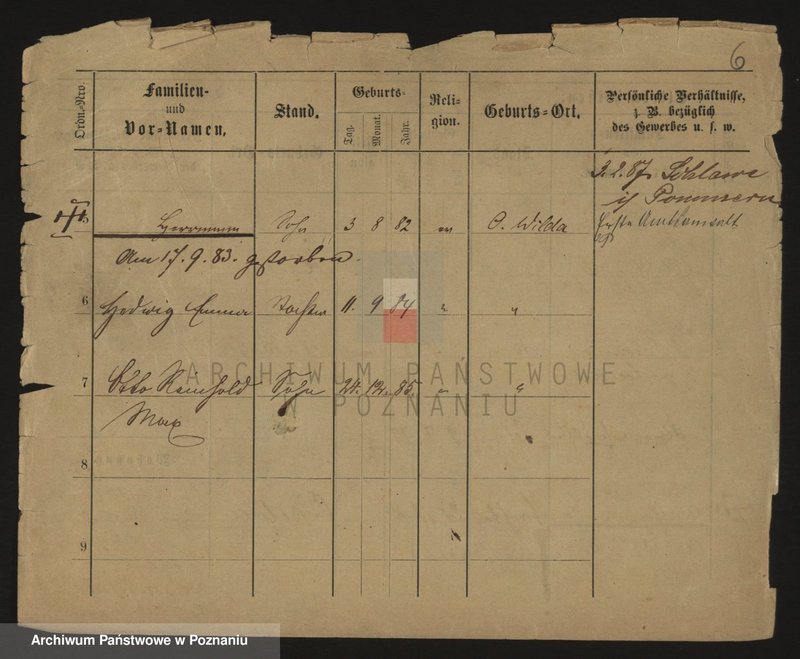 6
Ordn.-Nro.
Familien-
und
Vor-Namen.
Stand.
Geburts-
Tag.
Monat.
Jahr.
Reli-
gion.
Geburts-Ort.
Persönliche Verhältnisse,
z. B. bezüglich
des Gewerbes u. s. w.
3.2.87. Schlawe
i/ Pommern
Herrmann Sohn 3 8 82 ev O. Wilda
Erste Amtsanwalt
Am 17.9.83. gestorben.
6 Hedwig Emma Tochter 11. 9 84 " "
7 Otto Reinhold Sohn 24. 12. 85. " "
Max
8
9
ARCHIWUM PAŃSTWOWE
W POZNANIU
Archiwum Państwowe w Poznaniu